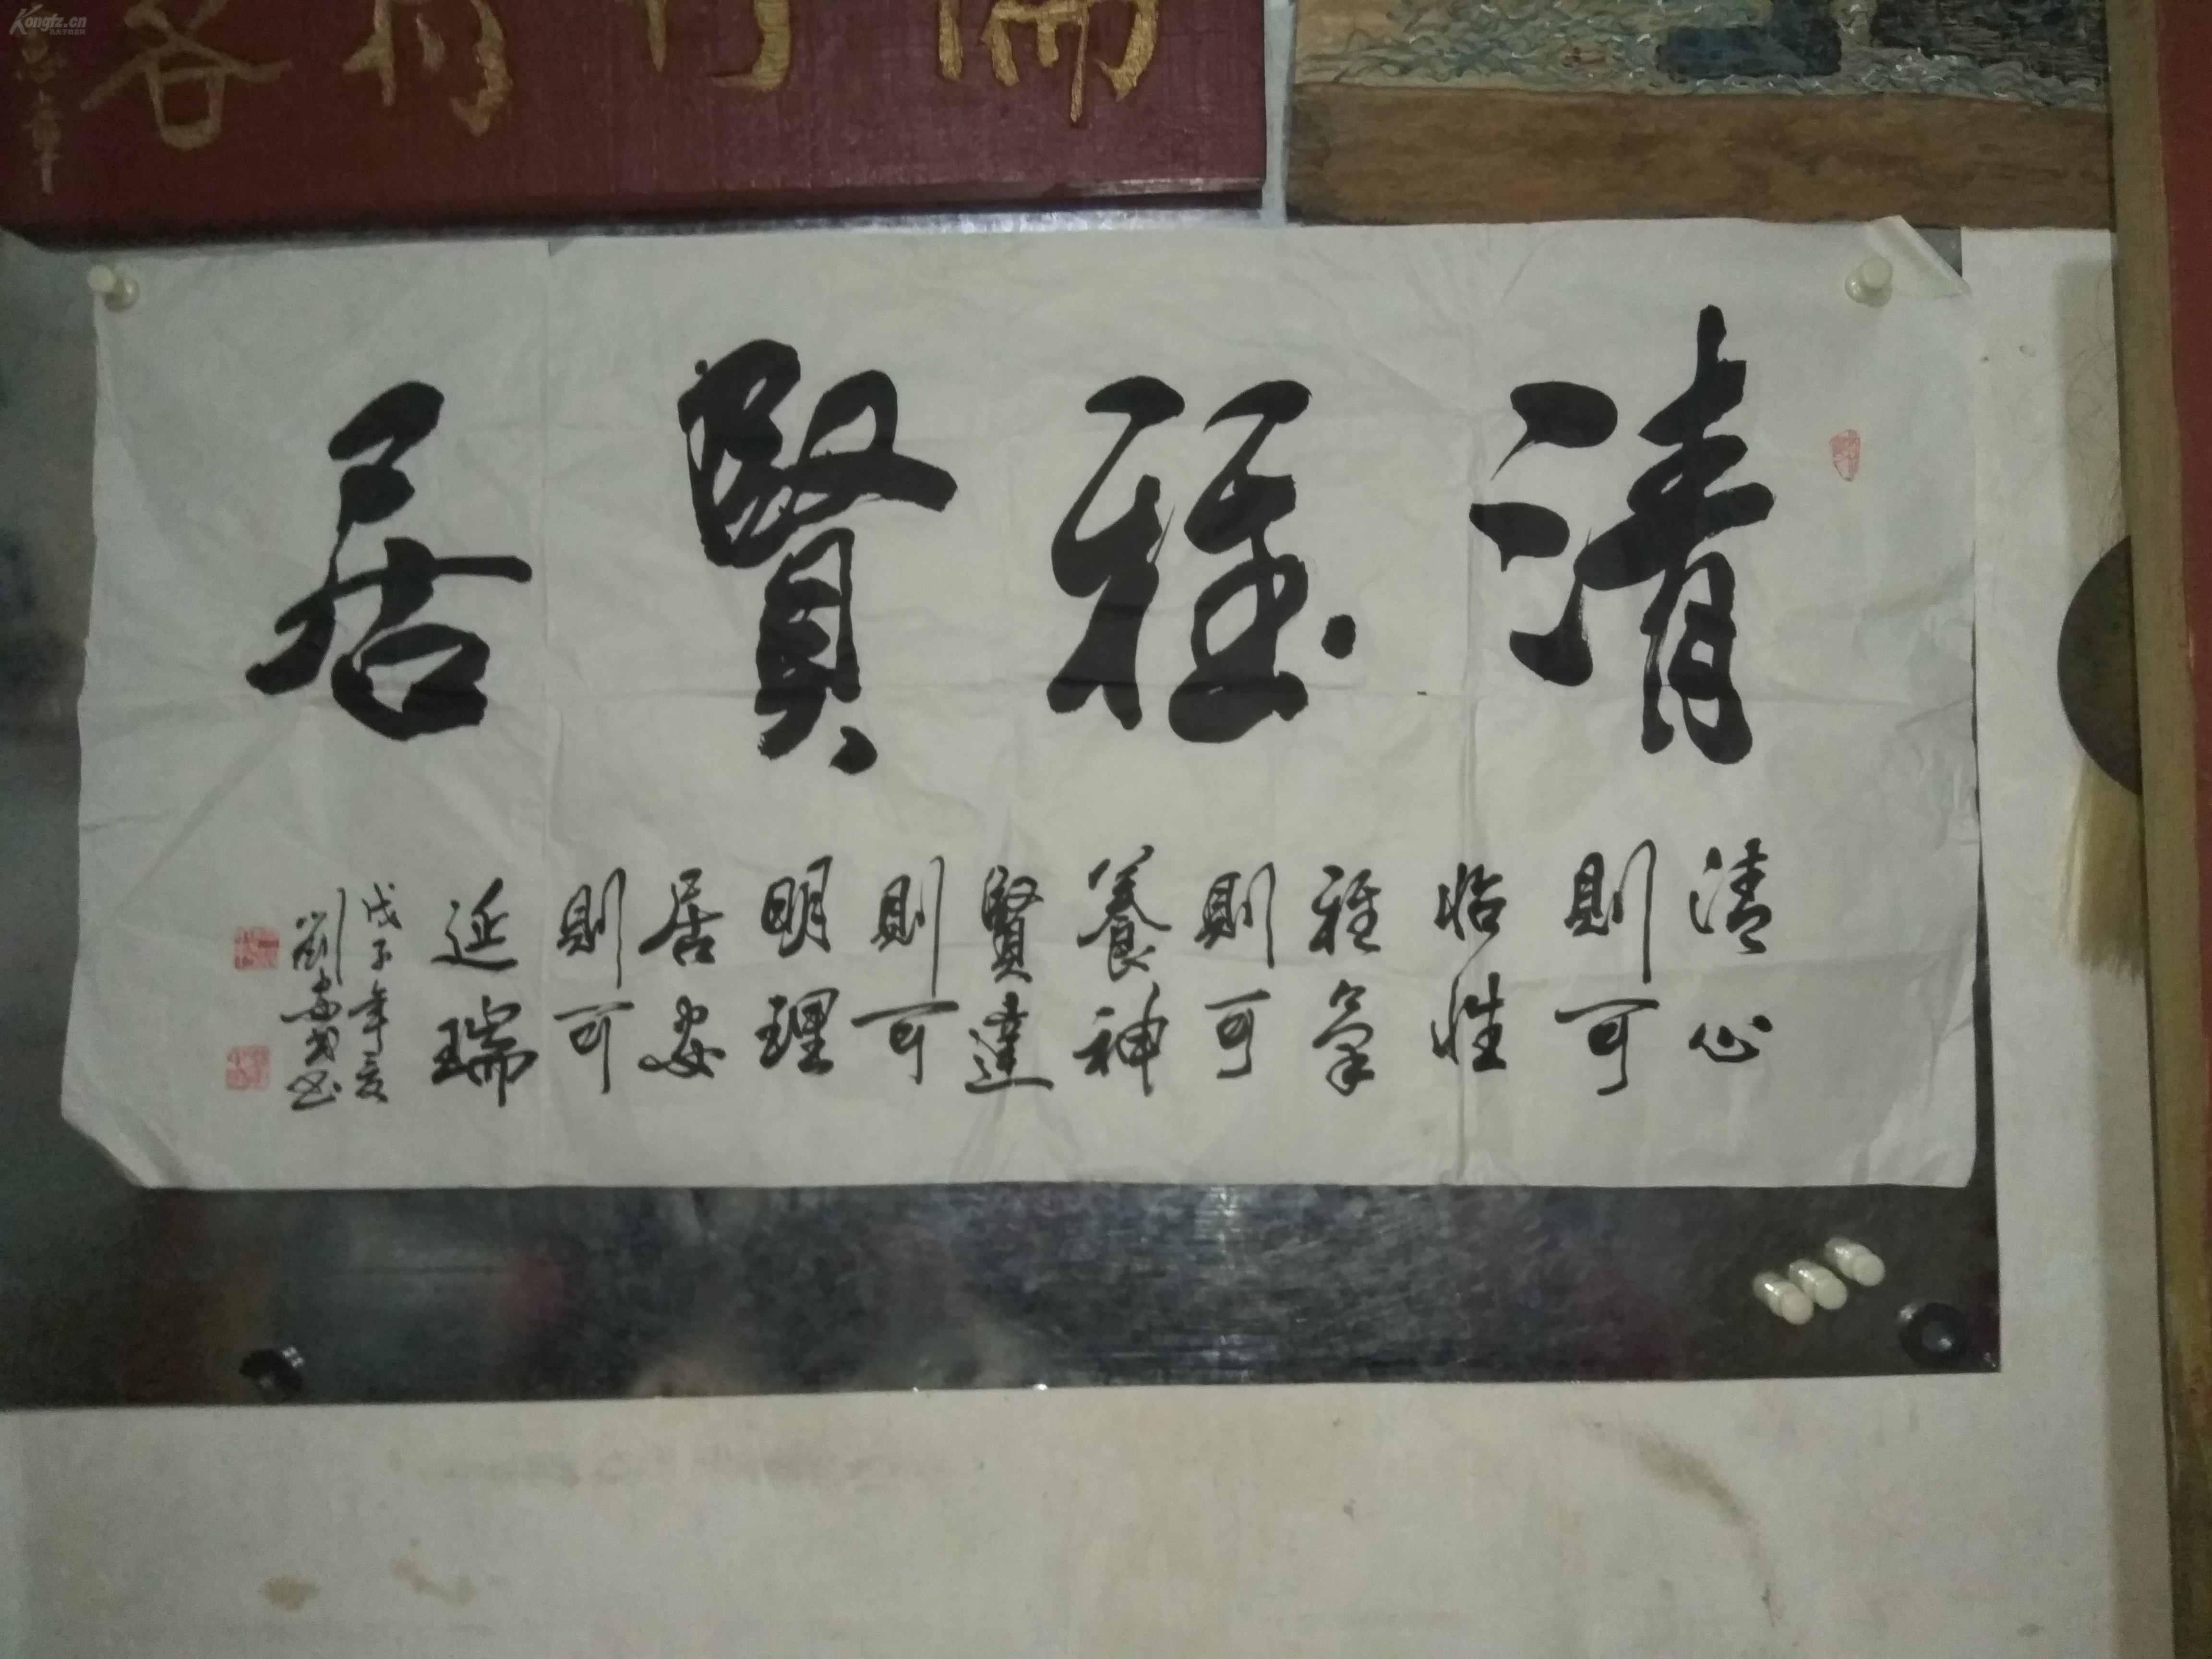 Kongfz.cn
清雅賢居
清心
則可
怡性
雅氣
則可
養神
賢達
則可
明理
居安
則可
延瑞
戊子年夏
劉
書